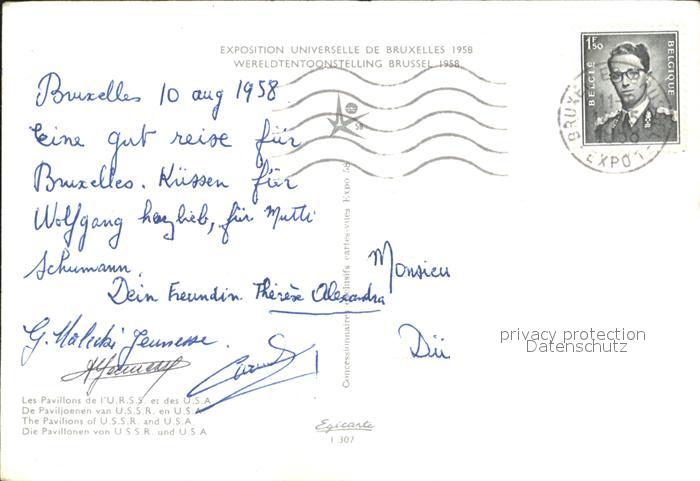 EXPOSITION UNIVERSELLE DE BRUXELLES 1958
WERELDTENTOONSTELLING BRUSSEL 1958
1F50
BELGIË
BELGIQUE
EXPO
58
Bruxelles 10 aug 1958
Eine gut reise für
Bruxelles. Küssen für
Wolfgang herzlieb, für Mutti
Schumann.
Dein Freundin. Thérèse Alexandra
Monsieu
Dü
privacy protection
Datenschutz
Concessionnaires exclusifs cartes-vues Expo 58
Les Pavillons de l'U.R.S.S. et des U.S.A.
De Paviljoenen van U.S.S.R. en U.S.A.
The Pavilions of U.S.S.R. and U.S.A.
Die Pavillonen von U.S.S.R. und U.S.A.
Egicarte
1.307